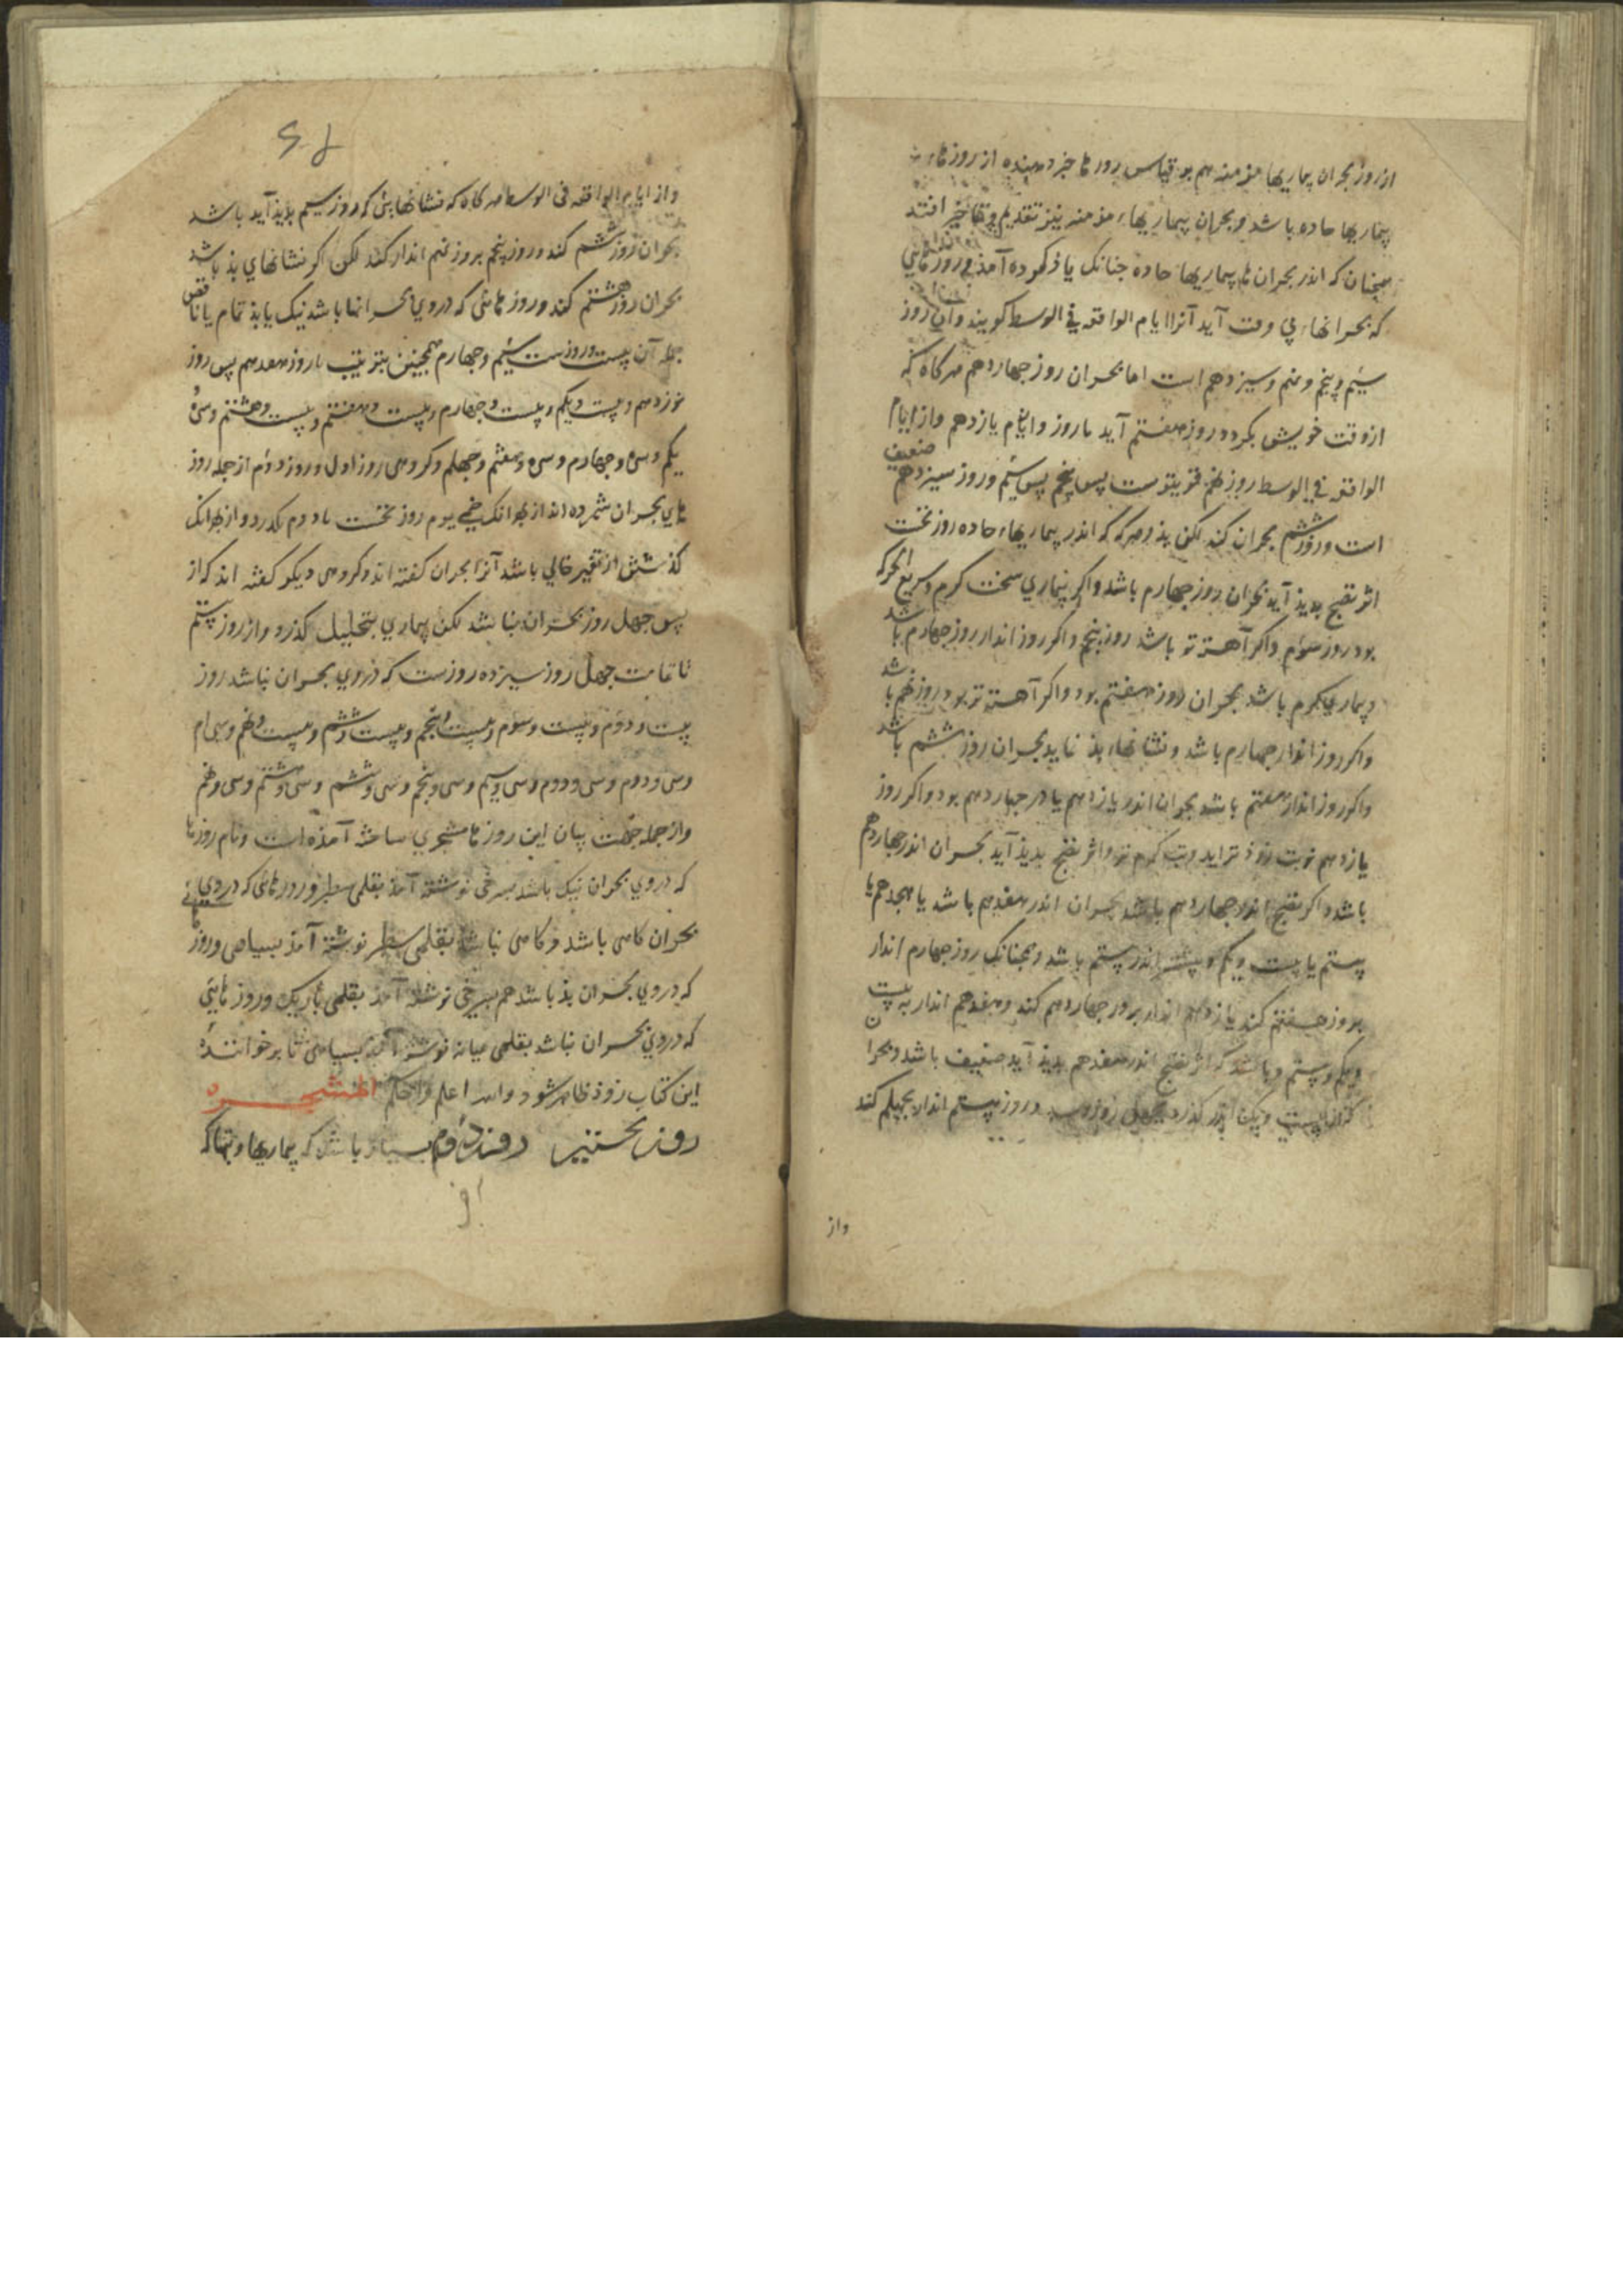 از روز بحران بیماریها مزمنه هم بر قیاس روزها خبر دهنده از روزهاء
بیماریها حاده باشد و بحران بیماریهاء مزمنه نیز تقدیم و تاخیر افتد
همچنان که اندر بحران بیماریها حاده جنانک یاذ کرده آمذ و روزهایی
که بحرانهاء بی وقت آید آنرا ایام الواقعه فی الوسط کویند وآن روز
سیم و پنجم و نهم و سیزدهم است اما بحران روز جهاردهم هرکاه که
ازوقت خویش بکردد روز هفتم آید یا روز یازدهم واز ایام
الواقعه فی الوسط روز نهم قویترست پس پنجم پس سیم و روز سیزدهم ضعیف
است و روز ششم بحران کند لکن بذ و هرکه که اندر بیماریهاء حاده روز نخست
اثر نضج بدیذ آید بحران روز جهارم باشد واکر بیماری سخت کرم و سریع الحرکه
بود روز سوم واکر آهسته تر باشد روز پنجم واکر روز انذار روز جهارم باشد
و بیماری کرم باشد بحران روز هفتم بود واکر آهسته تر بود روز نهم باشد
واکر روز انذار جهارم باشد و نشانهاء بذ نماید بحران روز ششم باشد
واکر روز انذار هفتم باشد بحران اندر یازدهم یا در جهاردهم بود واکر روز
یازدهم نوبت زوذتر اید وتب کرم تر واثر نضج بدیذ آید بحران اندر جهاردهم
باشد واکر نضج اندر جهاردهم باشد بحران اندر هفدهم باشد یا هجدهم یا
بیستم یا بیست ویکم و بیشتر اندر بیستم باشد وهمجنانک روز جهارم انذار
بروز هفتم کند یازدهم انذار بروز جهاردهم کند و هفدهم انذار به بیست
ویکم و بیستم و باشد که اثر نضج اندر هفدهم بدیذ آید ضعیف باشد و بحران
از بیست ویکم اندر کذرد بجهل روز و روز بیستم انذار بجهلم کند
واز
واز ایام الواقعه فی الوسط هرکاه که نشانهایی که روز سیم بدیذ آید باشد
بحران روز ششم کند و روز پنجم بروز نهم انذار کند لکن اکر نشانهای بذ باشد
بحران روز هشتم کند و روزهائی که دروی بحرانها باشد نیک یا بذ تمام یا ناقص
جمله آن بیست و روزست سیم و جهارم همجنین بترتیب تا روز هفدهم پس روز
نوزدهم و بیست ویکم و بیست وجهارم و بیست وهفتم و بیست وهشتم وسی و
یکم وسی وجهارم وسی وهفتم وجهلم وکروهی روز اول و روز دوم از جمله روز
های بحران شمرده اند از بهر آنک حمی یوم روز نخست یا دوم بکذرد و از بهر آنک
کذشتن از تغیر خالی باشد آنرا بحران کفته اند وکروهی دیکر کفته اند که از
پس جهل روز بحران نباشد لکن بیماری بتحلیل کذرد واز روز بیستم
تا تمامت جهل روز سیزده روزست که دروی بحران نباشد روز
بیست و دوم و بیست وسوم و بیست وپنجم و بیست وششم و بیست ونهم وسی ام
وسی ودوم وسی ودوم وسی وسیم وسی وپنجم وسی وششم وسی وهشتم وسی ونهم
واز جمله جهت بیان این روزها مشجری ساخته آمذه است و نام روزها
که دروی بحران نیک باشد بسرخی نوشته آمذ بقلمی سطبر و روزهائی که دروی
بحران کاهی باشد و کاهی نباشد بقلمی سطبر نوشته آمذ بسیاهی وروزهائی
که دروی بحران بذ باشد هم بسرخی نوشته آمذ بقلمی باریک وروزهائی
که دروی بحران نباشد بقلمی میانه نوشته آمذ بسیاهی تا بر خوانندهٔ
این کتاب زوذ ظاهر شود والله اعلم واحکم المشجره
روز نخستین روز دوم بسیار باشد که بیماریها و تبها که